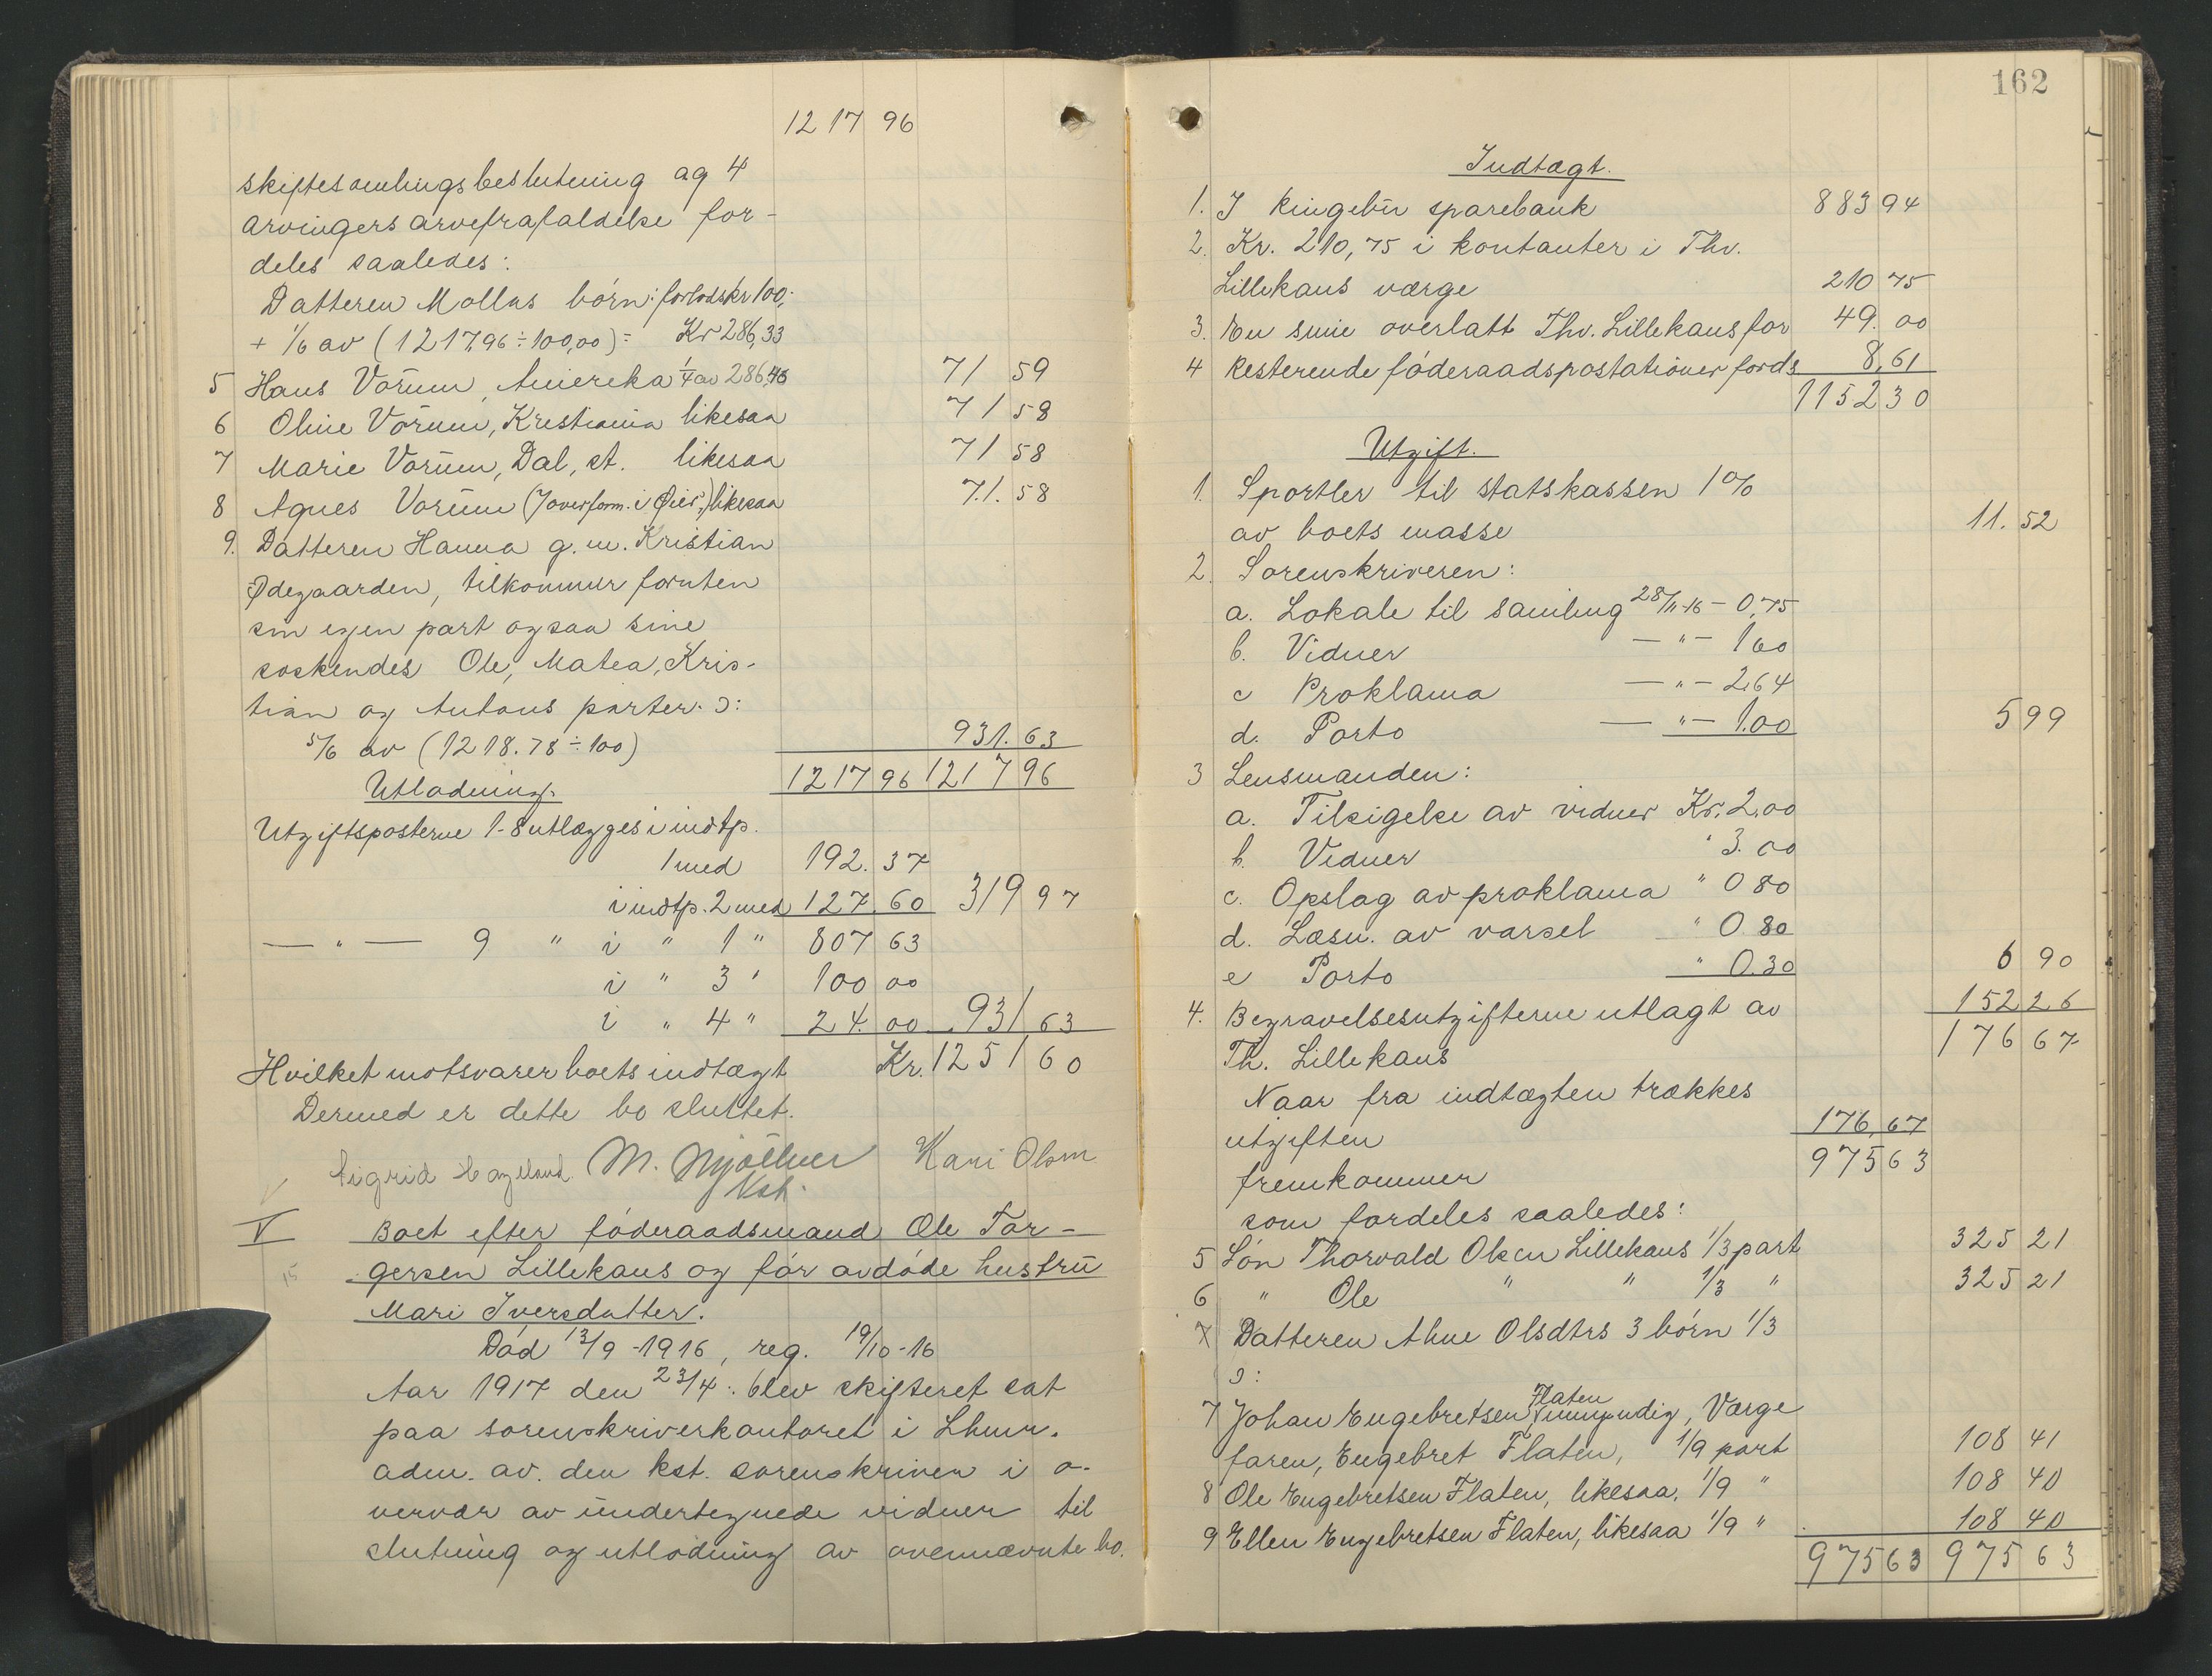 1217 96
skiftesamlingsbeslutning og 4
arvingers arvefrafaldelse for-
deles saaledes:
Datteren Mollas børn: forlods kr 100,-
+ 1/6 av (1217,96 ÷ 100,00) = Kr 286,33
5 Hans Vorum, Amereka 1/4 av 286,46 71 59
6 Oline Vorum, Krestiania likesaa 71 58
7 Marie Vorum, Dal, st. likesaa 71 58
8 Agnes Vorum (Joverform. i Øier,) likesaa 71. 58
9. Datteren Hanna g. m. Kristian
Ødegaarden, tilkommer foruten
sin egen part ogsaa sine
søskendes Ole, Matea, Kris-
tian og Antons parter. ɔ:
5/6 av (1218.78 ÷ 100) 931. 63
Utlodning. 1217 96 1217 96
Utgiftsposterne 1-8 utlægges i indtp.
1 med 192. 37
i indtp. 2 med 127 60 319 97
— " — 9 " i " 1 " 807 63
i " 3 " 100 00
i " 4 " 24. 00 931 63
Hvilket motsvarer boets indtægt Kr. 1251 60
Dermed er dette bo sluttet.
Sigrid M. Kari Olsen
Kst.
V Boet efter føderaadsmand Ole Tor-
15 gersen Lillekaus og før avdøde hustru
Mari Iversdatter.
Død 13/9-1916, reg. 19/10-16
Aar 1917 den 23/4. blev skifteret sat
paa sorenskriverkontoret i Lhmr.
adm. av. den kst. sorenskriver i o-
vervær av undertegnede vidner til
slutning og utlodning av ovennævnte bo.
162
Indtægt.
1. I Ringebu sparebank 883 94
2. Kr. 210,75 i kontanter i Thv.
Lillekaus værge 210 75
3. En smie overlatt Thv. Lillekaus for 49. 00
4 Resterende føderaadspostationer fords 8,61
1152 30
Utgift.
1. Sportler til statskassen 1%
av boets masse 11. 52
2. Sorenskriveren:
a. Lokale til samling 28/11-16 – 0,75
b. Vidner — " — 1 60
c Proklama — " — 2,64
d. Porto — " — 1.00 5 99
3 Lensmanden:
a. Tilsigelse av vidner Kr. 2,00
b. Vidner " 3. 00
c. Opslag av proklama " 0 80
d. Læsn. av varsel " 0. 80
e Porto " 0.30 6 90
4. Begravelsesutgifterne utlagt av 152 26
Th. Lillekaus 176 67
Naar fra indtægten trækkes
utgiften 176,67
fremkommer 975 63
som fordeles saaledes:
5 Søn Thorvald Olsen Lillekaus 1/3 part 325 21
6 " Ole " " 1/3 " 325 21
7 Datteren Ahne Olsdtrs 3 børn 1/3
ɔ:
Flaten
7 Johan Engebretsen umyndig, Værge
faren, Engebret Flaten, 1/9 part 108 41
8 Ole Engebretsen Flaten, likesaa, 1/9 " 108 40
9 Ellen Engebretsen Flaten, likesaa 1/9 " 108 40
975 63 975 63